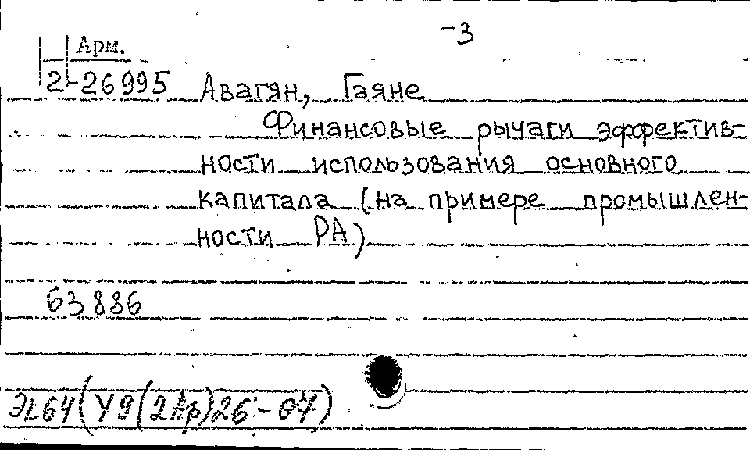 -3
Арм.
2-26995
Авагян, Гаяне
Финансовые рычаги эффектив-
ности использования основного
капитала (на примере промышлен-
ности РА)
63886
ЭL64(У9(2Ар)26-07)